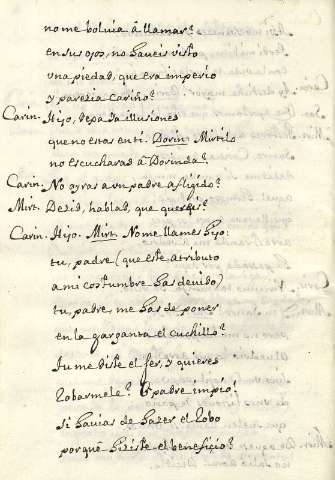 no me boluia â llamar?
en sus ojos, no haueis visto
vna piedad, que era imperio
y parezia cariño?
Carin. Hijo, dexa ya illusiones
que no estas en ti. Dorin. Mirtilo
no escucharas â Dorinda?
Carin. No oyras a vn padre afligido?
Mirt. Dezid, hablad, que quereis?
Carin. Hijo. Mirt. No me llames hijo:
tu, padre (que este atributo
a mi costumbre has deuido)
tu, padre, me has de poner
en la garganta el cuchillo?
tu me diste el ser, y quieres
robarmele? O padre impio!
si hauias de hazer el robo
porque hiziste el beneficio?